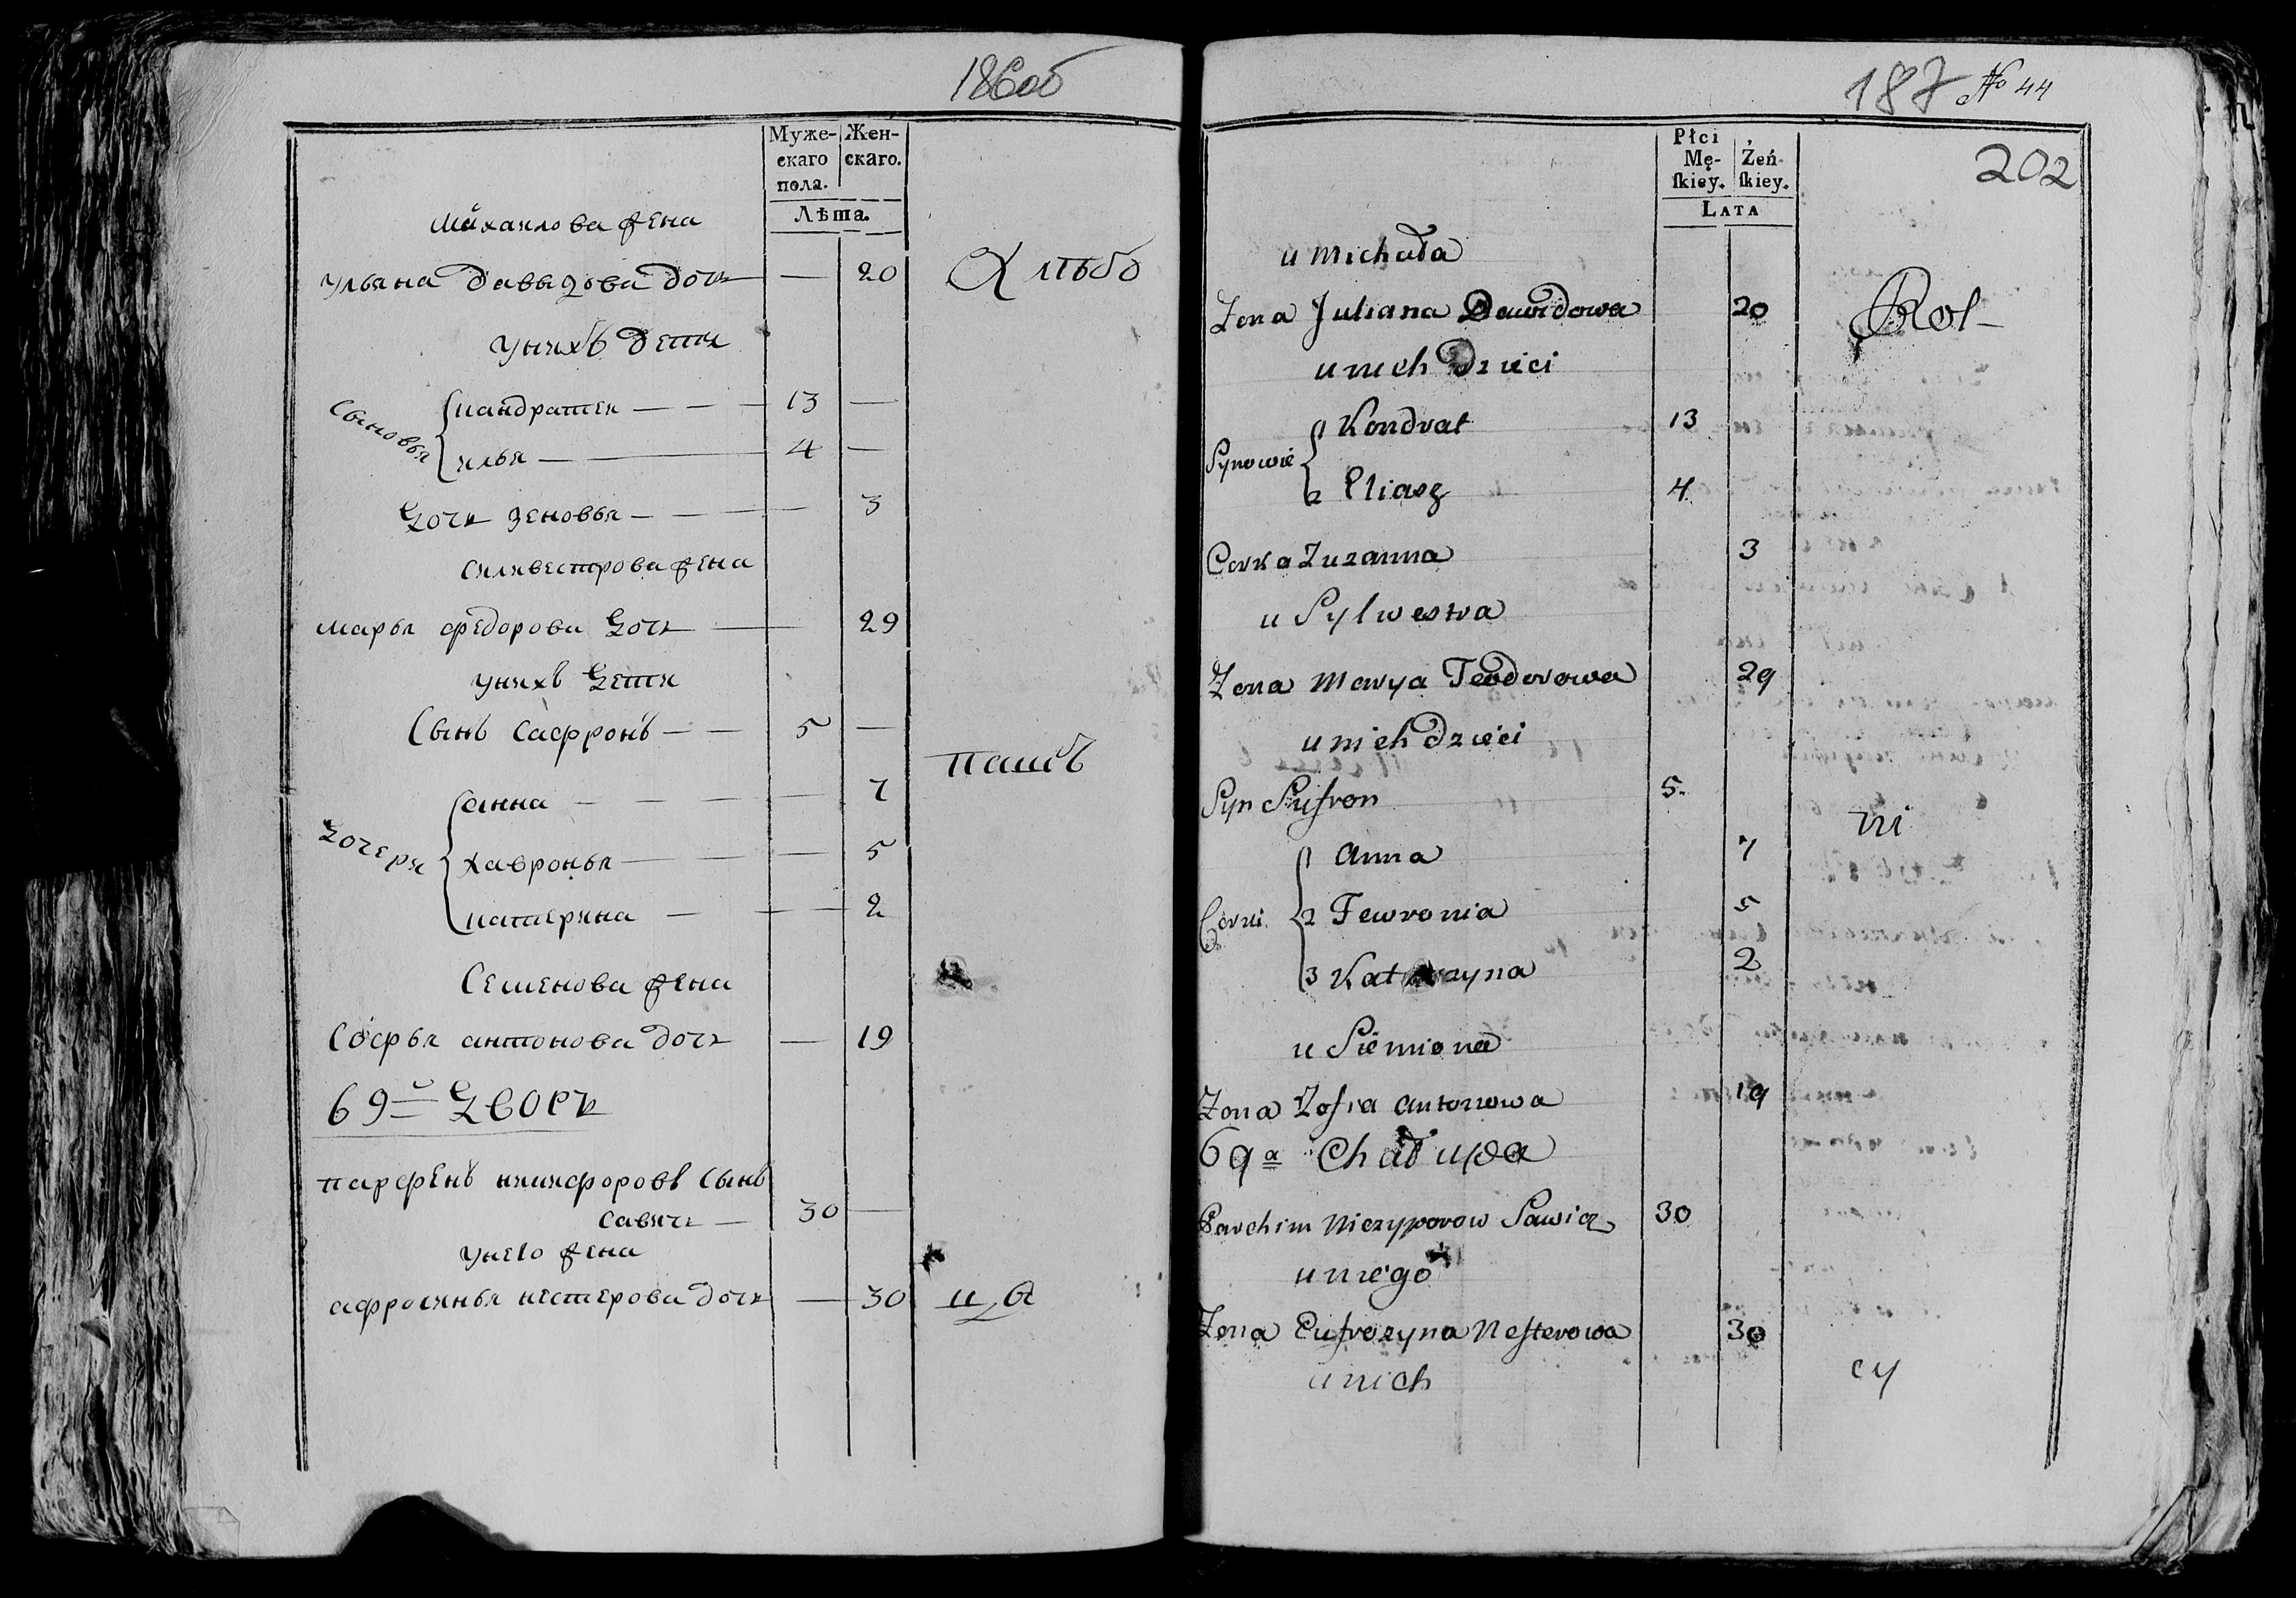 186об
Муже-
скаго
пола.
Жен-
скаго.
Лѣта.
Михаилова жена
Ульяна Давыдова дочь — 20 Хлѣбо
у нихъ дети
Сыновья
Кандратей — — — 13 —
Илья — 4 —
Дочь Зеновья — — — 3
Силивестрова жена
Марья Федорова дочь — 29
у нихъ дети
Сынъ Сафронъ — — 5 —
пашъ
Дочери
Анна — — — 7
Хавронья — — — 5
Катерина — — 2
Семенова жена
Софья Антонова дочь — 19
69й Дворъ
Парфенъ Никифоровъ Сынъ
Савичь — 30 —
у него жена
Афросинья Нестерова дочь — 30 ц, ы
187 № 44
202
Płci
Mę-
ſkiey.
Żeń-
ſkiey.
LATA
u Michała
Zona Juliana Dawidowa 20 Rol-
u nich Dzieci
Synowie
1 Kondrat 13
2 Eliasz 4
Corka Zuzanna 3
u Sylwestra
Zona Marya Teodorowa 29
u nich Dzieci
Syn Sufron 5.
ni
Corki
1 Anna 7
2 Fewronia 5
3 Katarzyna 2
u Siemiona
Zona Zofia Antonowa 19
69a Chałupa
Parchim Niczyporow Sawicz 30
u niego
Zona Eufrozyna Nesterowa 30
u nich
cy